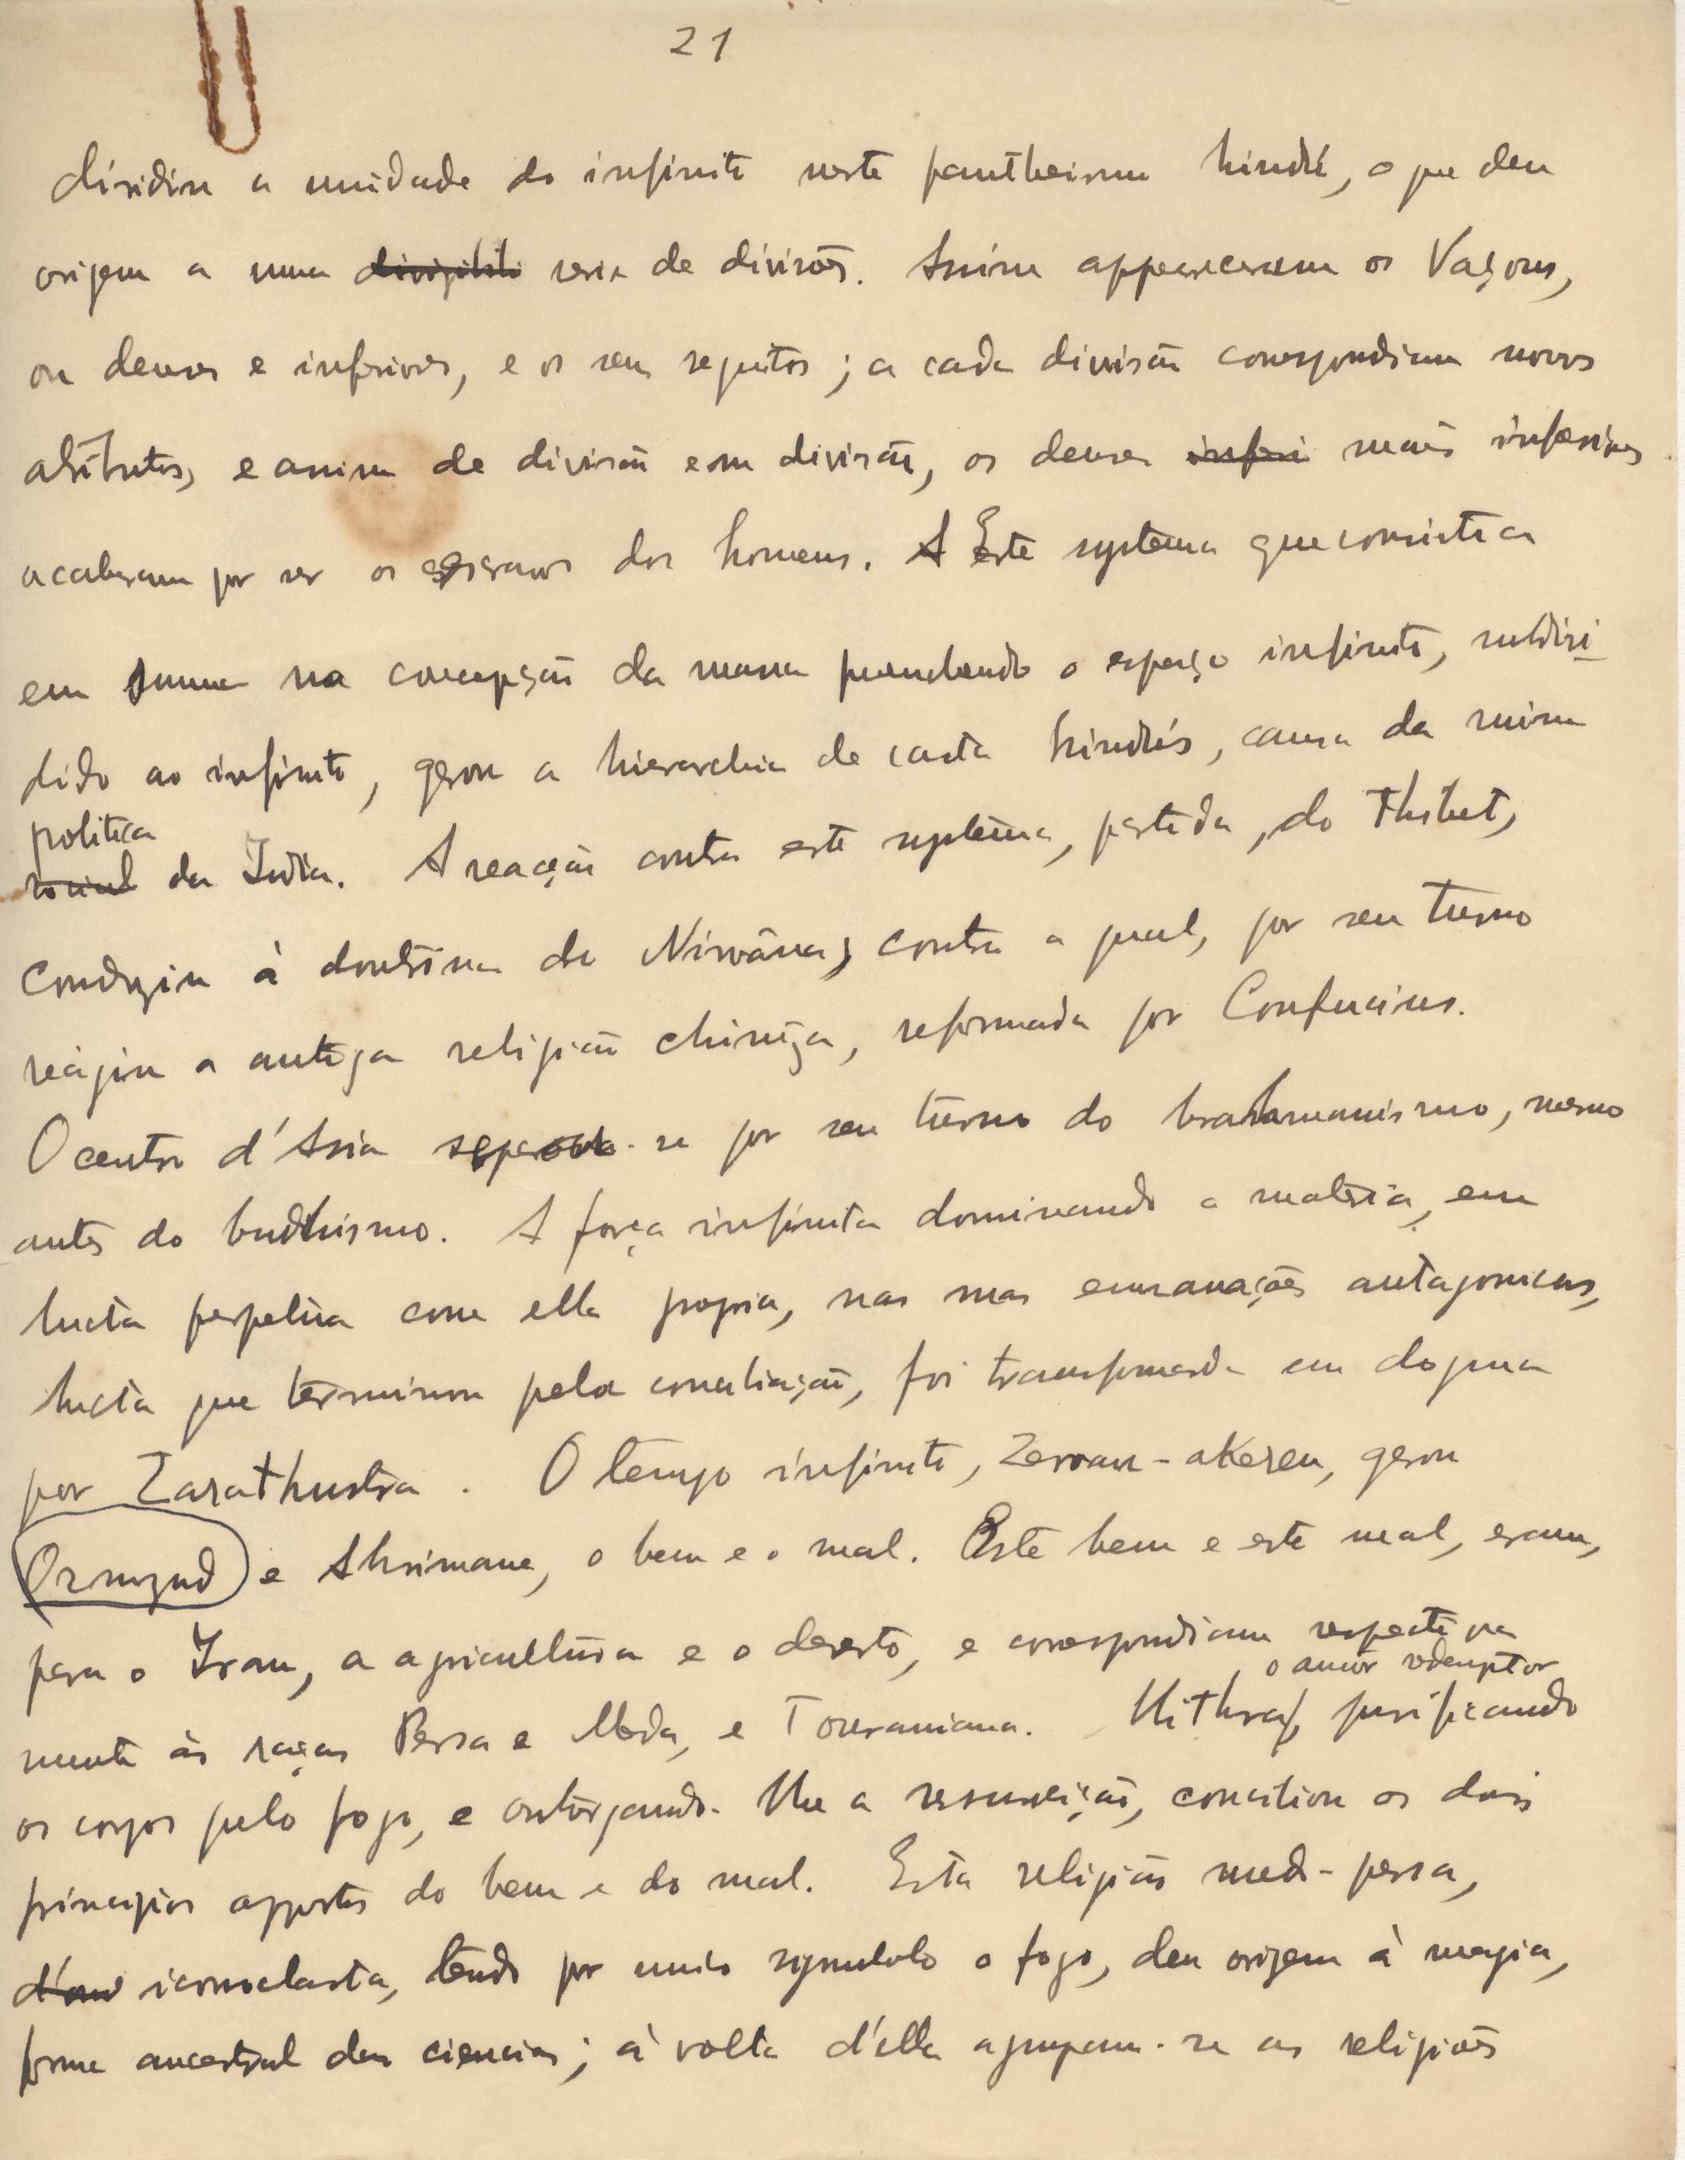 21
dividiu a unidade do infinito neste pantheismo hindú, o que deu
origem a uma serie de divisões. Assim appareceram os
ou deuses inferiores, e os seus ; a cada divisão correspondiam novos
attributos, e assim de divisão em divisão, os deuses inferi mais inferiores
acabaram por ser os escravos dos homens. A Este systema que consistia
em summa na concepção da massa preenchendo o espaço infinito, subdivi-
dido ao infinito, gerou a hierarchia de casta hindús, causa da ruina
politica
social da India. A reacção contra este systema, partida, do Thibet,
conduziu á doutrina do Nirvâna; contra a qual, por seu turno
reagiu a antiga religião chineza, reformada por Confucius.
O centro d'Asia separou-se por seu turno do brahmanismo, mesmo
antes do budhismo. A força infinita dominando a materia, em
lucta perpetua com ella propria, nas suas emanações antagonicas,
lucta que terminou pela conciliação, foi transformada em dogma
por Zarathustra. O tempo infinito, Zervan-akeren, gerou
Ormuzd e Ahrimane, o bem e o mal. Este bem e este mal, eram,
para o Iran, a agricultura e o deserto, e correspondiam respectiva
, o amor redemptor
mente às raças Persa e Meda, e Touraniana. Mithras, purificando
os corpos pelo fogo, e outorgando-lhe a resurreição, conciliou os dois
principios oppostos do bem e do mal. Esta religião medo-persa,
iconoclasta, tendo por unico symbolo o fogo, deu origem à magia,
forma ancestral das ciencias; à volta d'ella agrupam-se as religiões